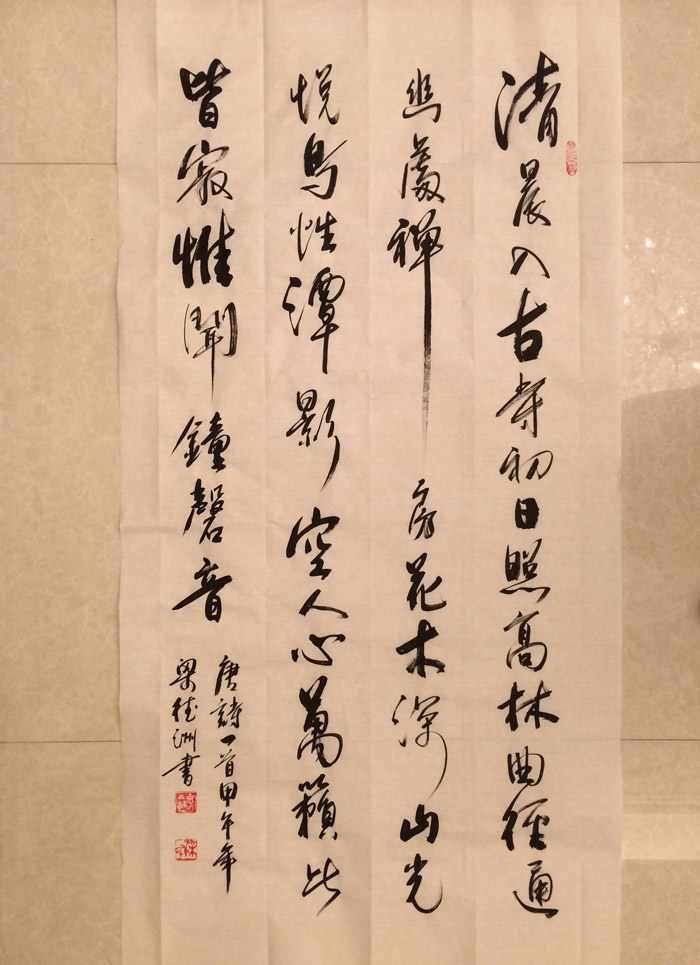 清晨入古寺初日照高林曲径通
幽處禅房花木深山光
悦鳥性潭影空人心萬籟此
皆寂惟聞鐘磬音
唐詩一首甲午年
梁德洲書